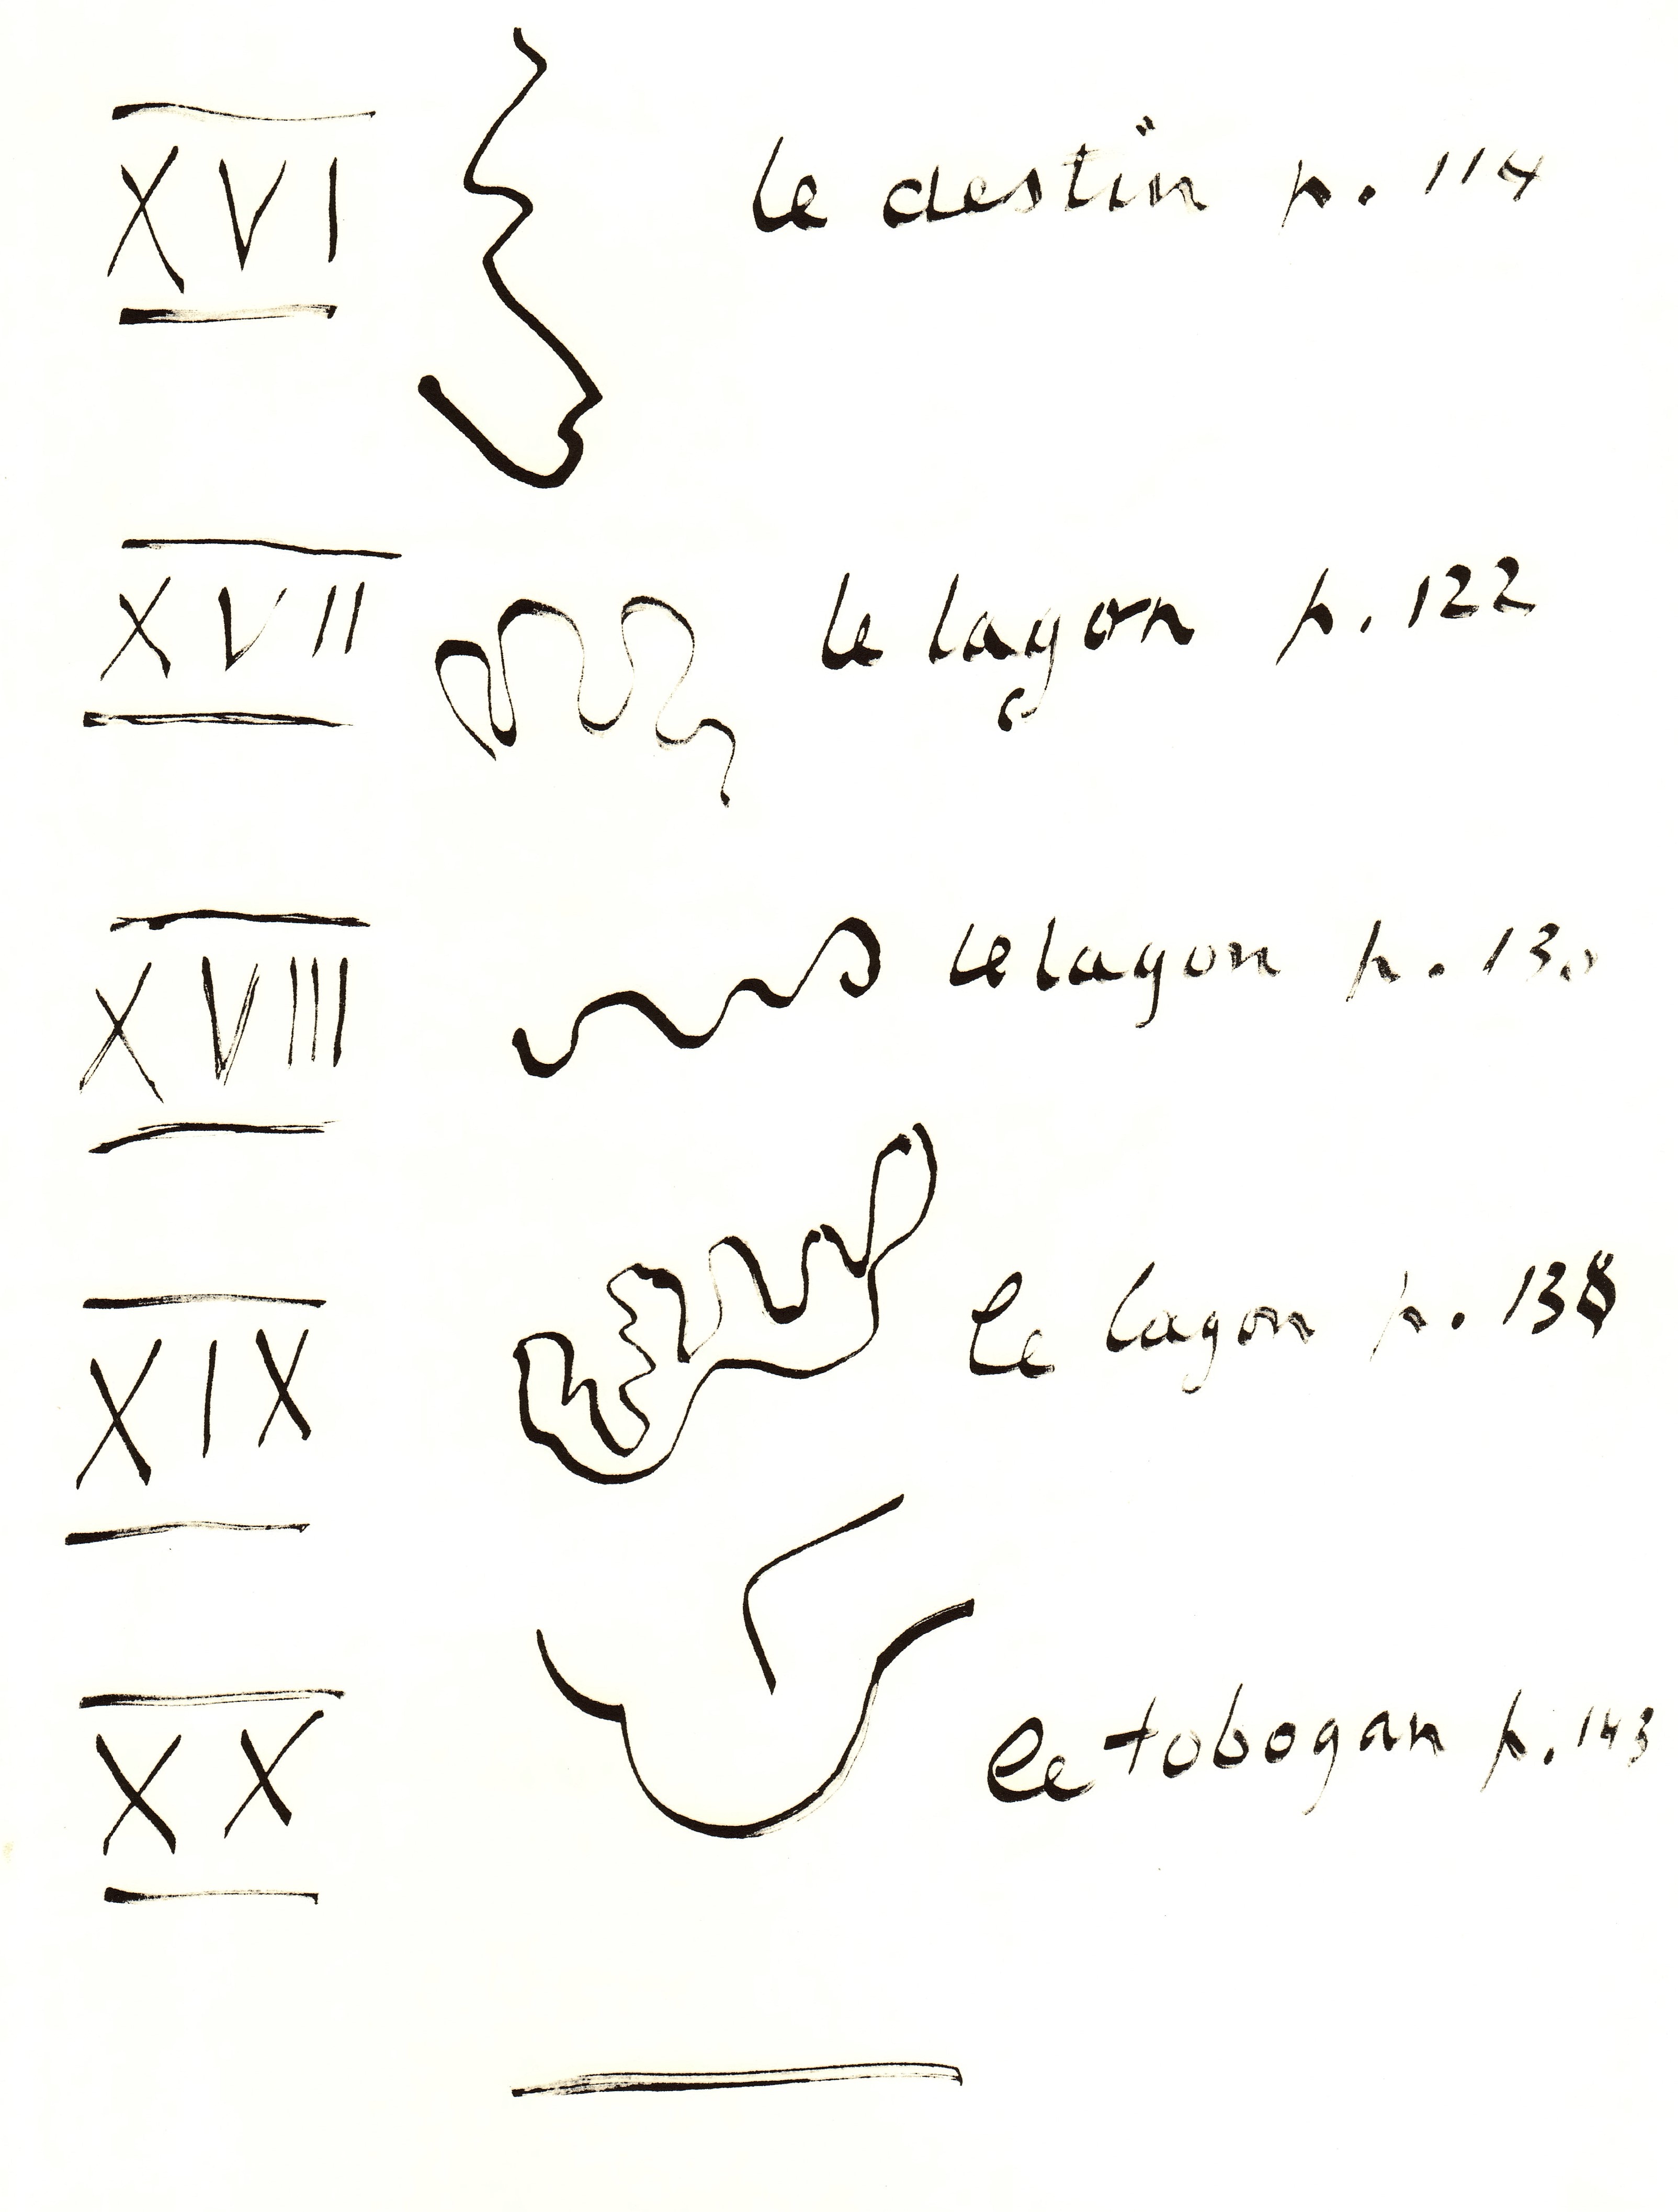 XVI le destin p. 114
XVII le lagon p. 122
XVIII le lagon p. 130
XIX le lagon p. 138
XX le tobogan p. 143